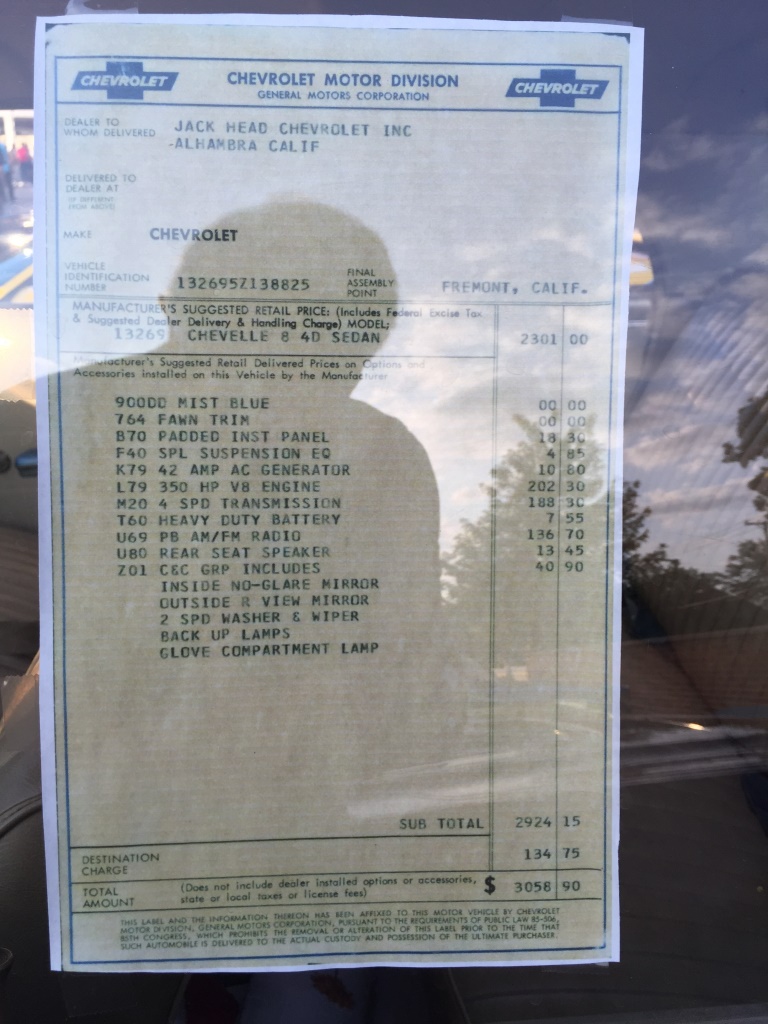 CHEVROLET CHEVROLET MOTOR DIVISION CHEVROLET
GENERAL MOTORS CORPORATION
DEALER TO
WHOM DELIVERED JACK HEAD CHEVROLET INC
-ALHAMBRA CALIF
DELIVERED TO
DEALER AT
(IF DIFFERENT
FROM ABOVE)
MAKE CHEVROLET
VEHICLE
IDENTIFICATION
NUMBER 132695Z138825 FINAL
ASSEMBLY
POINT FREMONT, CALIF.
MANUFACTURER'S SUGGESTED RETAIL PRICE: (Includes Federal Excise Tax
& Suggested Dealer Delivery & Handling Charge) MODEL:
13269 CHEVELLE 8 4D SEDAN 2301 00
Manufacturer's Suggested Retail Delivered Prices on Options and
Accessories installed on this Vehicle by the Manufacturer
900DD MIST BLUE 00 00
764 FAWN TRIM 00 00
B70 PADDED INST PANEL 18 30
F40 SPL SUSPENSION EQ 4 85
K79 42 AMP AC GENERATOR 10 80
L79 350 HP V8 ENGINE 202 30
M20 4 SPD TRANSMISSION 188 30
T60 HEAVY DUTY BATTERY 7 55
U69 PB AM/FM RADIO 136 70
U80 REAR SEAT SPEAKER 13 45
Z01 C&C GRP INCLUDES 40 90
INSIDE NO-GLARE MIRROR
OUTSIDE R VIEW MIRROR
2 SPD WASHER & WIPER
BACK UP LAMPS
GLOVE COMPARTMENT LAMP
SUB TOTAL 2924 15
DESTINATION
CHARGE 134 75
TOTAL
AMOUNT (Does not include dealer installed options or accessories,
state or local taxes or license fees) $ 3058 90
THIS LABEL AND THE INFORMATION THEREON HAS BEEN AFFIXED TO THIS MOTOR VEHICLE BY CHEVROLET
MOTOR DIVISION, GENERAL MOTORS CORPORATION, PURSUANT TO THE REQUIREMENTS OF PUBLIC LAW 85-506,
85TH CONGRESS, WHICH PROHIBITS THE REMOVAL OR ALTERATION OF THIS LABEL PRIOR TO THE TIME THAT
SUCH AUTOMOBILE IS DELIVERED TO THE ACTUAL CUSTODY AND POSSESSION OF THE ULTIMATE PURCHASER.